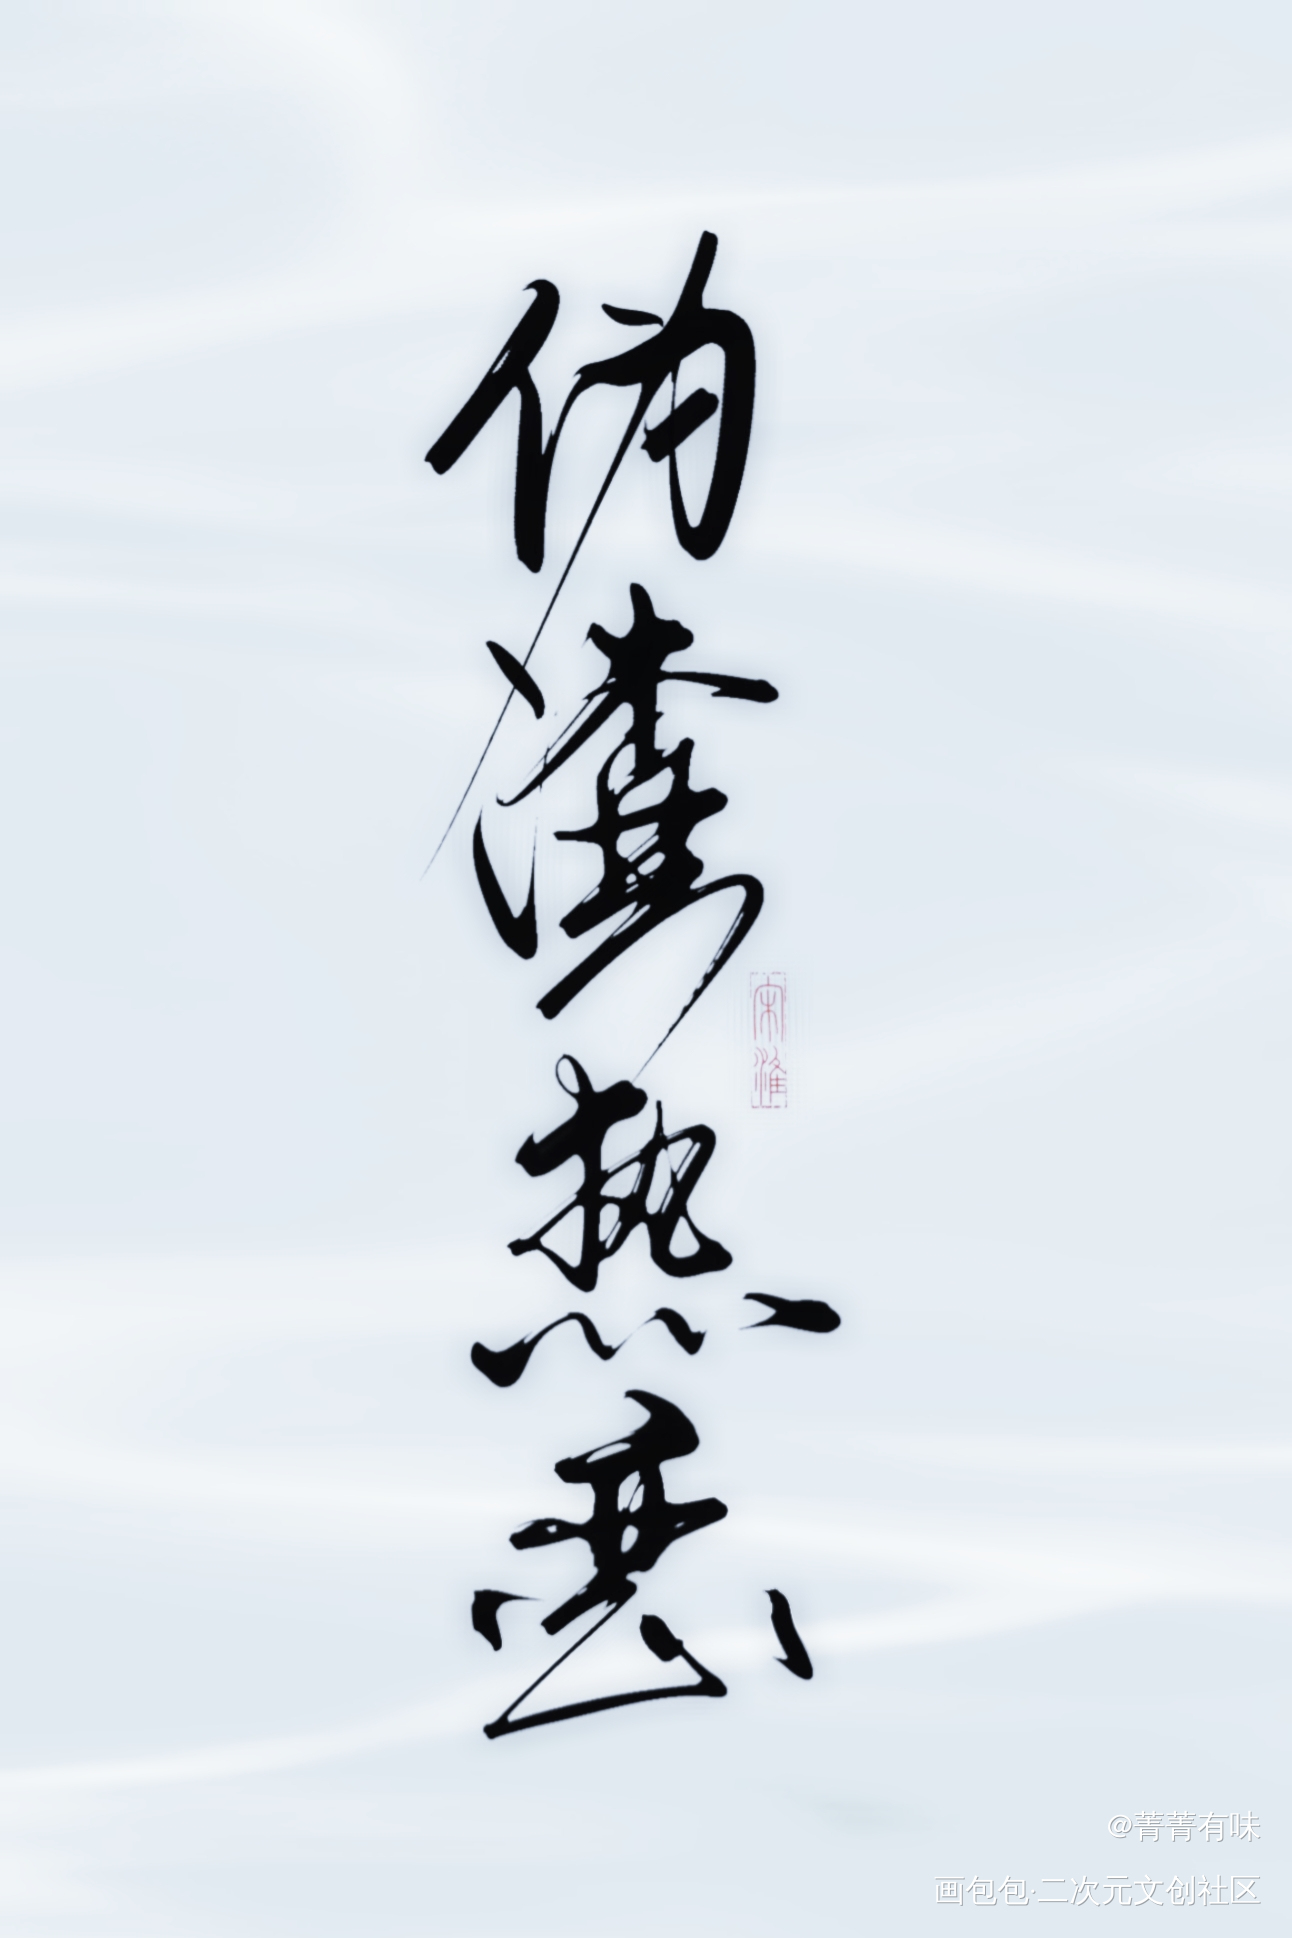 伪渎热恶
宋淮
@菁菁有味
画包包·二次元文创社区